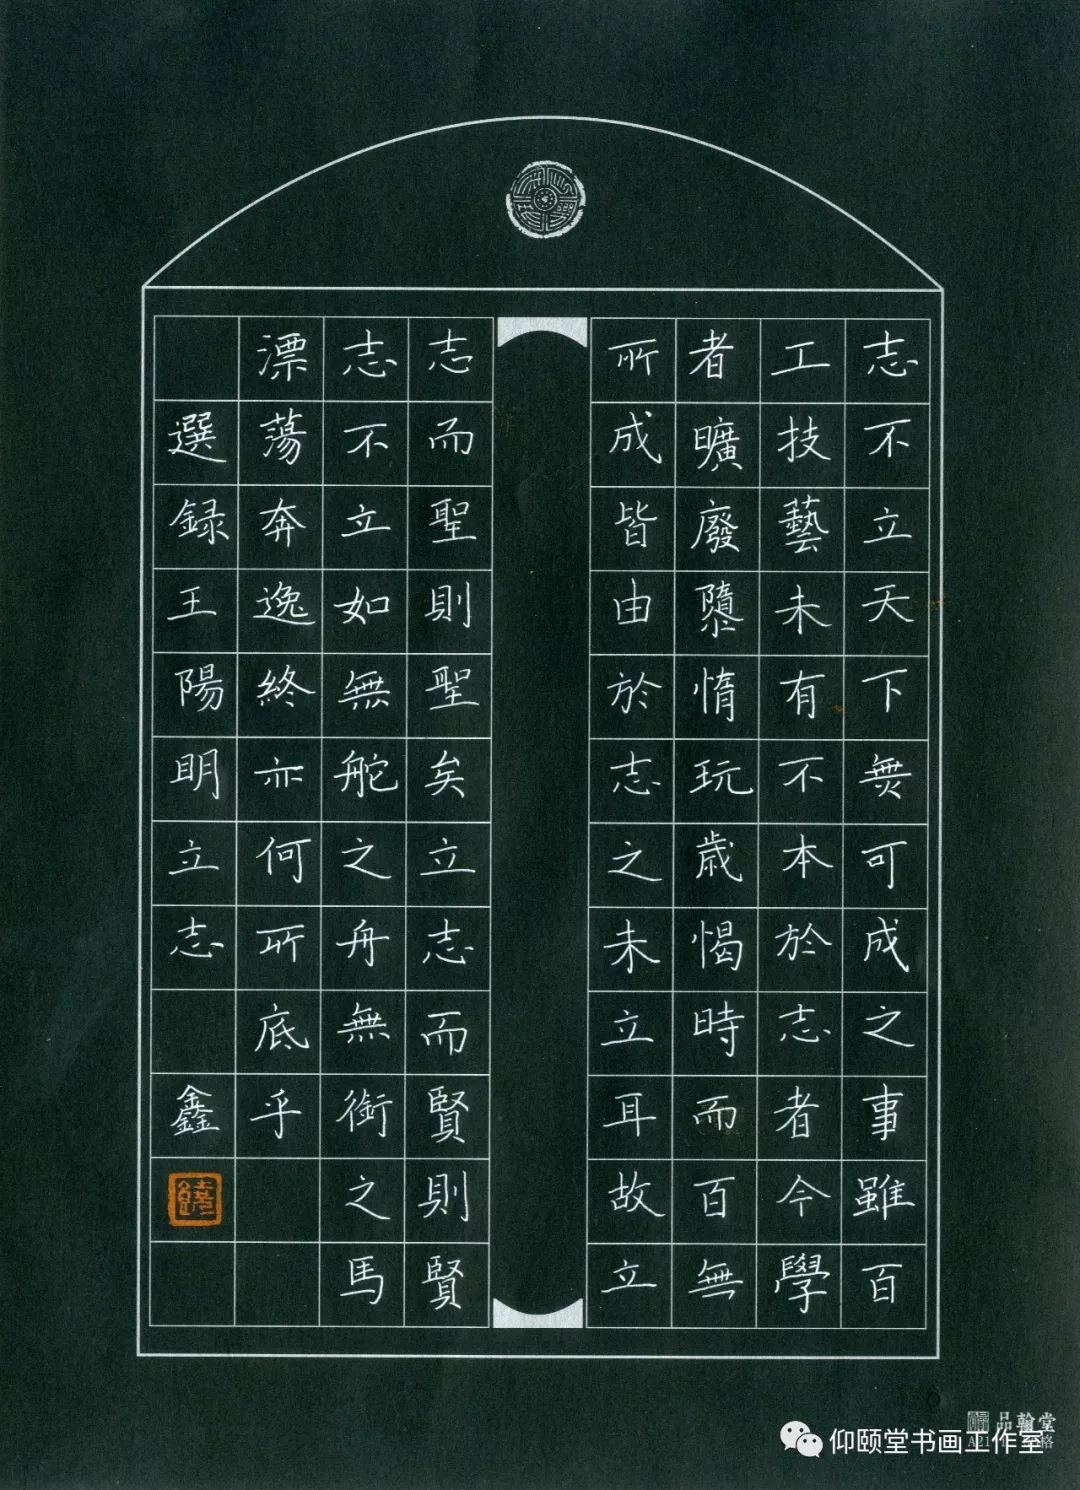 志不立天下無可成之事雖百
工技藝未有不本於志者今學
者曠廢隳惰玩歲愒時而百無
所成皆由於志之未立耳故立
志而聖則聖矣立志而賢則賢
志不立如無舵之舟無銜之馬
漂蕩奔逸終亦何所底乎
選録王陽明立志 鑫
品翰堂
仰颐堂书画工作室